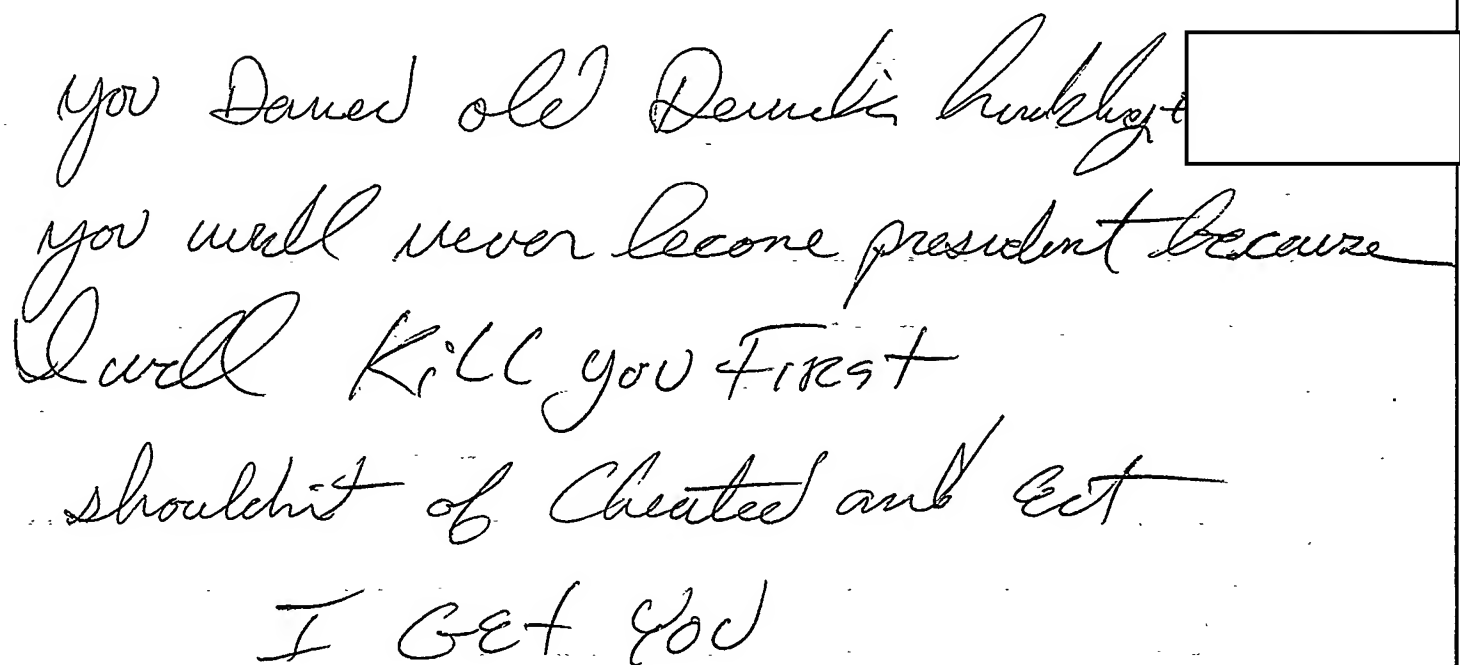 you Damed old
you will never become president because
I will Kill you First
shouldn't of Cheated and Ect
I GEt YoU